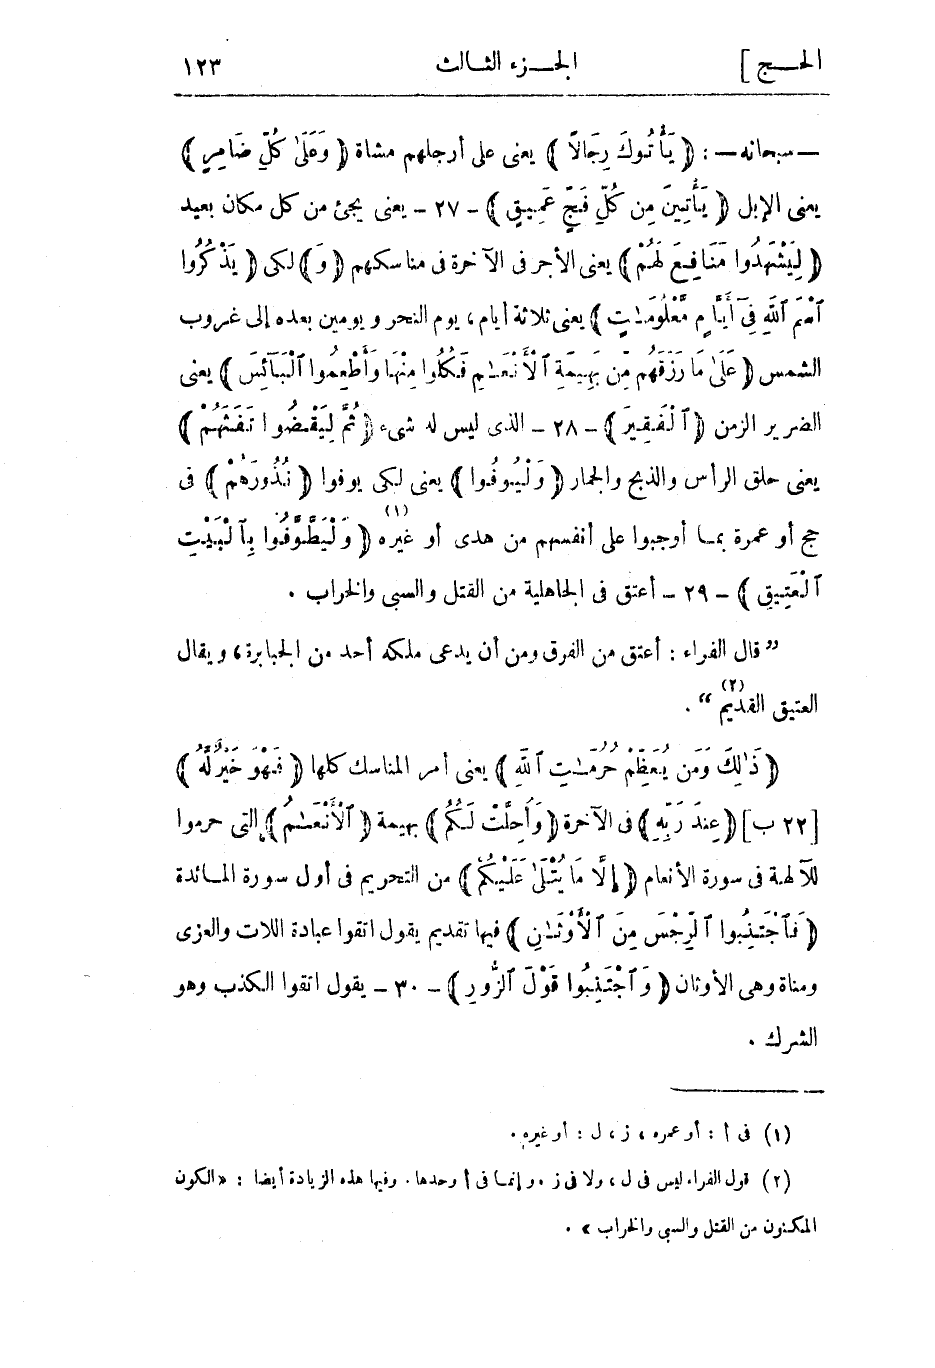 الحـــج ]     الجـــزء الثـالث     ١٢٣
— سبحانه — : ( يَأْتُوكَ رِجَالًا ) يعنى على أرجلهم مشاة ( وَعَلَىٰ كُلِّ ضَامِرٍ )
يعنى الإبل ( يَأْتِينَ مِن كُلِّ فَجٍّ عَمِيقٍ ) - ٢٧ - يعنى يجئ من كل مكان بعيد
( لِيَشْهَدُوا مَنَافِعَ لَهُمْ ) يعنى الأجر فى الآخرة فى مناسكهم ( وَ ) لكى ( يَذْكُرُوا
ٱسْمَ ٱللَّهِ فِىٓ أَيَّامٍ مَّعْلُومَـٰتٍ ) يعنى ثلاثة أيام ، يوم النحر ويومين بعده إلى غروب
الشمس ( عَلَىٰ مَا رَزَقَهُم مِّن بَهِيمَةِ ٱلْأَنْعَـٰمِ فَكُلُوا مِنْهَا وَأَطْعِمُوا ٱلْبَآئِسَ ) يعنى
الضرير الزمن ( ٱلْفَقِيرَ ) - ٢٨ - الذى ليس له شىء ( ثُمَّ لْيَقْضُوا تَفَثَهُمْ )
يعنى حلق الرأس والذبح والجمار ( وَلْيُوفُوا ) يعنى لكى يوفوا ( نُذُورَهُمْ ) فى
حج أو عمرة بمـا أوجبوا على أنفسهم من هدى أو غيره (١) ( وَلْيَطَّوَّفُوا بِٱلْبَيْتِ
ٱلْعَتِيقِ ) - ٢٩ - أعتق فى الجاهلية من القتل والسبى والخراب .
" قال الفراء : أعتق من الغرق ومن أن يدعى ملكه أحد من الجبابرة ، ويقال
العتيق القديم (٢) " .
( ذَٰلِكَ وَمَن يُعَظِّمْ حُرُمَـٰتِ ٱللَّهِ ) يعنى أمر المناسك كلها ( فَهُوَ خَيْرٌ لَّهُ )
[ ٢٢ ب ] ( عِندَ رَبِّهِ ) فى الآخرة ( وَأُحِلَّتْ لَكُمُ ) بهيمة ( ٱلْأَنْعَـٰمُ ) التى حرموا
للآلهة فى سورة الأنعام ( إِلَّا مَا يُتْلَىٰ عَلَيْكُمْ ) من التحريم فى أول سورة المـائدة
( فَٱجْتَنِبُوا ٱلرِّجْسَ مِنَ ٱلْأَوْثَـٰنِ ) فيها تقديم يقول اتقوا عبادة اللات والعزى
ومناة وهى الأوثان ( وَٱجْتَنِبُوا قَوْلَ ٱلزُّورِ ) - ٣٠ - يقول اتقوا الكذب وهو
الشرك .
(١) فى أ : أو عمره ، ز ، ل : أو غيره .
(٢) قول الفراء ليس فى ل ، ولا فى ز . وإنمـا فى أ وحدها . وفيها هذه الزيادة أيضا : « الكون
المكنون من القتل والسبى والخراب » .